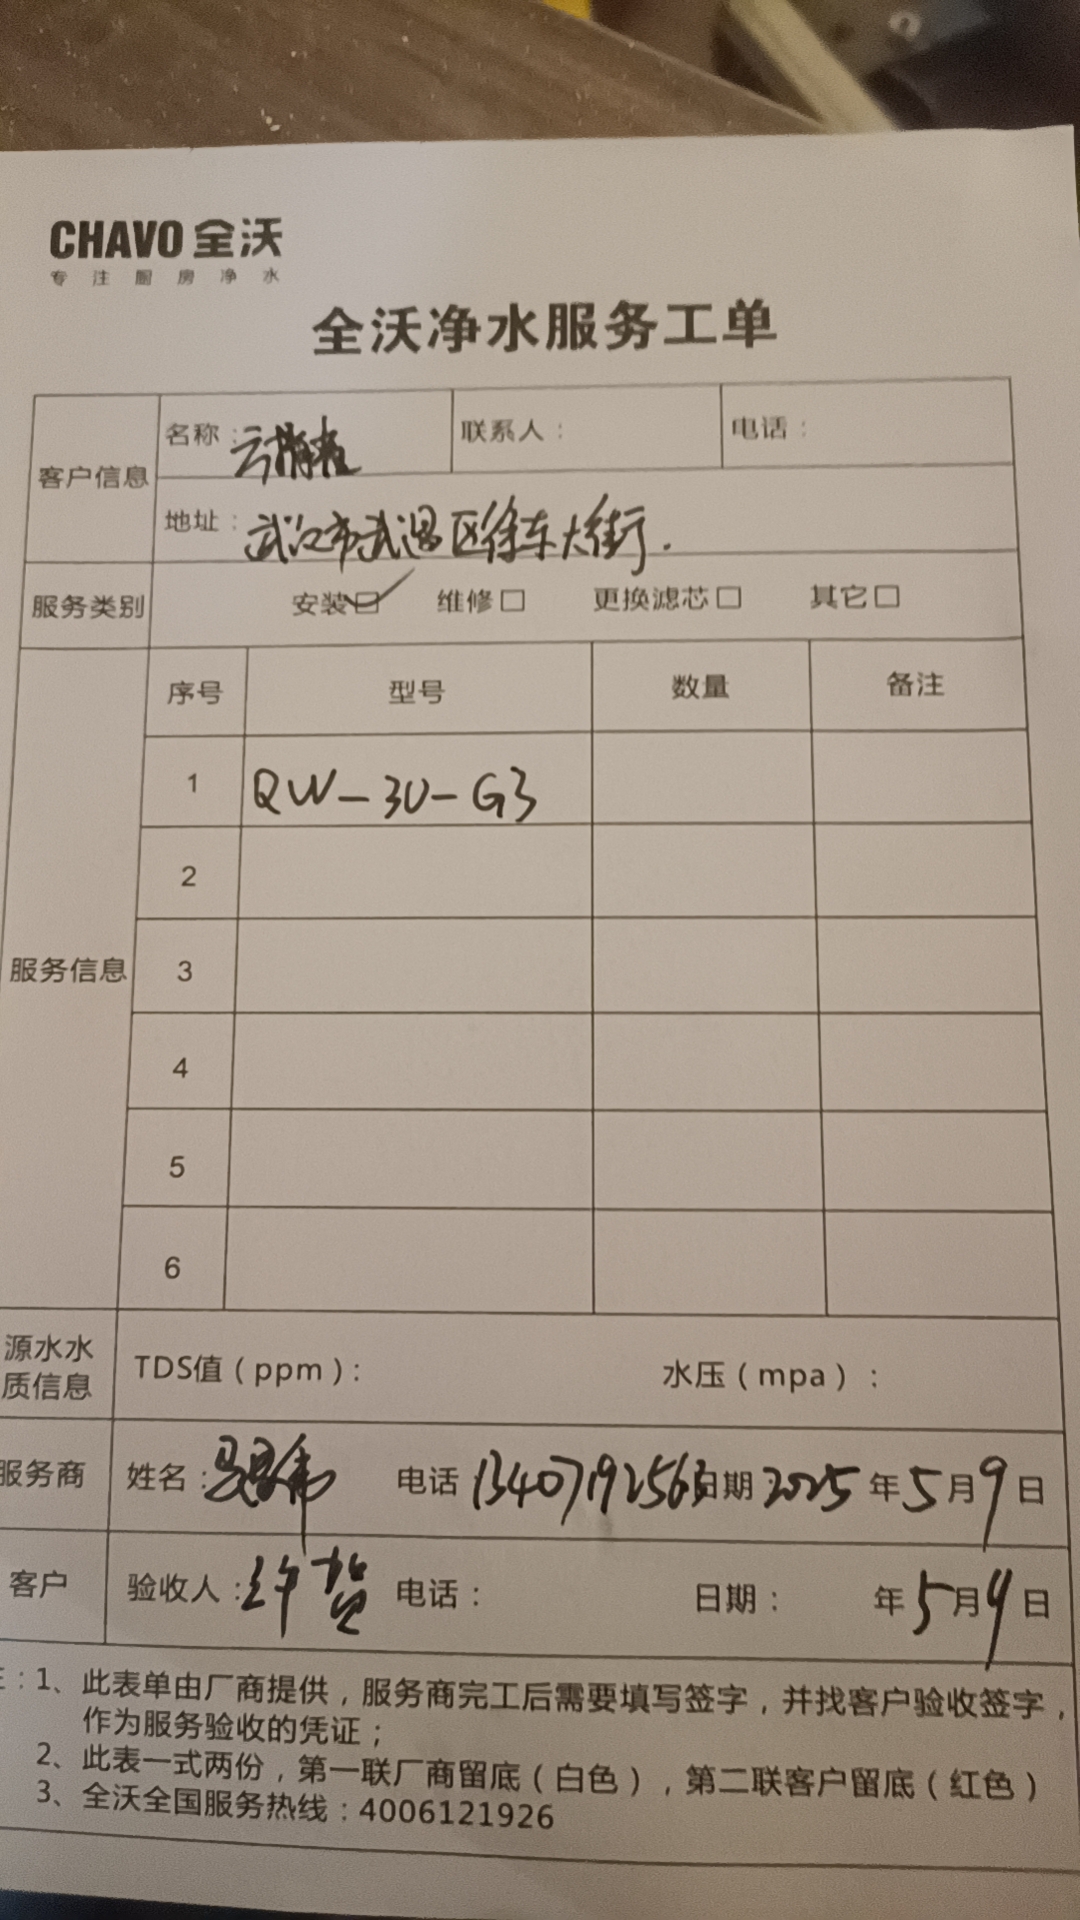 CHAVO 全沃
专注厨房净水
全沃净水服务工单
客户信息
名称：云 联系人： 电话：
地址：武汉市武昌区徐东大街.
服务类别 安装☑ 维修□ 更换滤芯□ 其它□
服务信息
序号 型号 数量 备注
1 QW-3U-G3
2
3
4
5
6
源水水质信息 TDS值（ppm）: 水压（mpa）:
服务商 姓名： 电话 13407192563 日期 2025 年 5 月 9 日
客户 验收人：许 电话： 日期： 年 5 月 9 日
注：1、此表单由厂商提供，服务商完工后需要填写签字，并找客户验收签字，
作为服务验收的凭证；
2、此表一式两份，第一联厂商留底（白色），第二联客户留底（红色）
3、全沃全国服务热线：4006121926